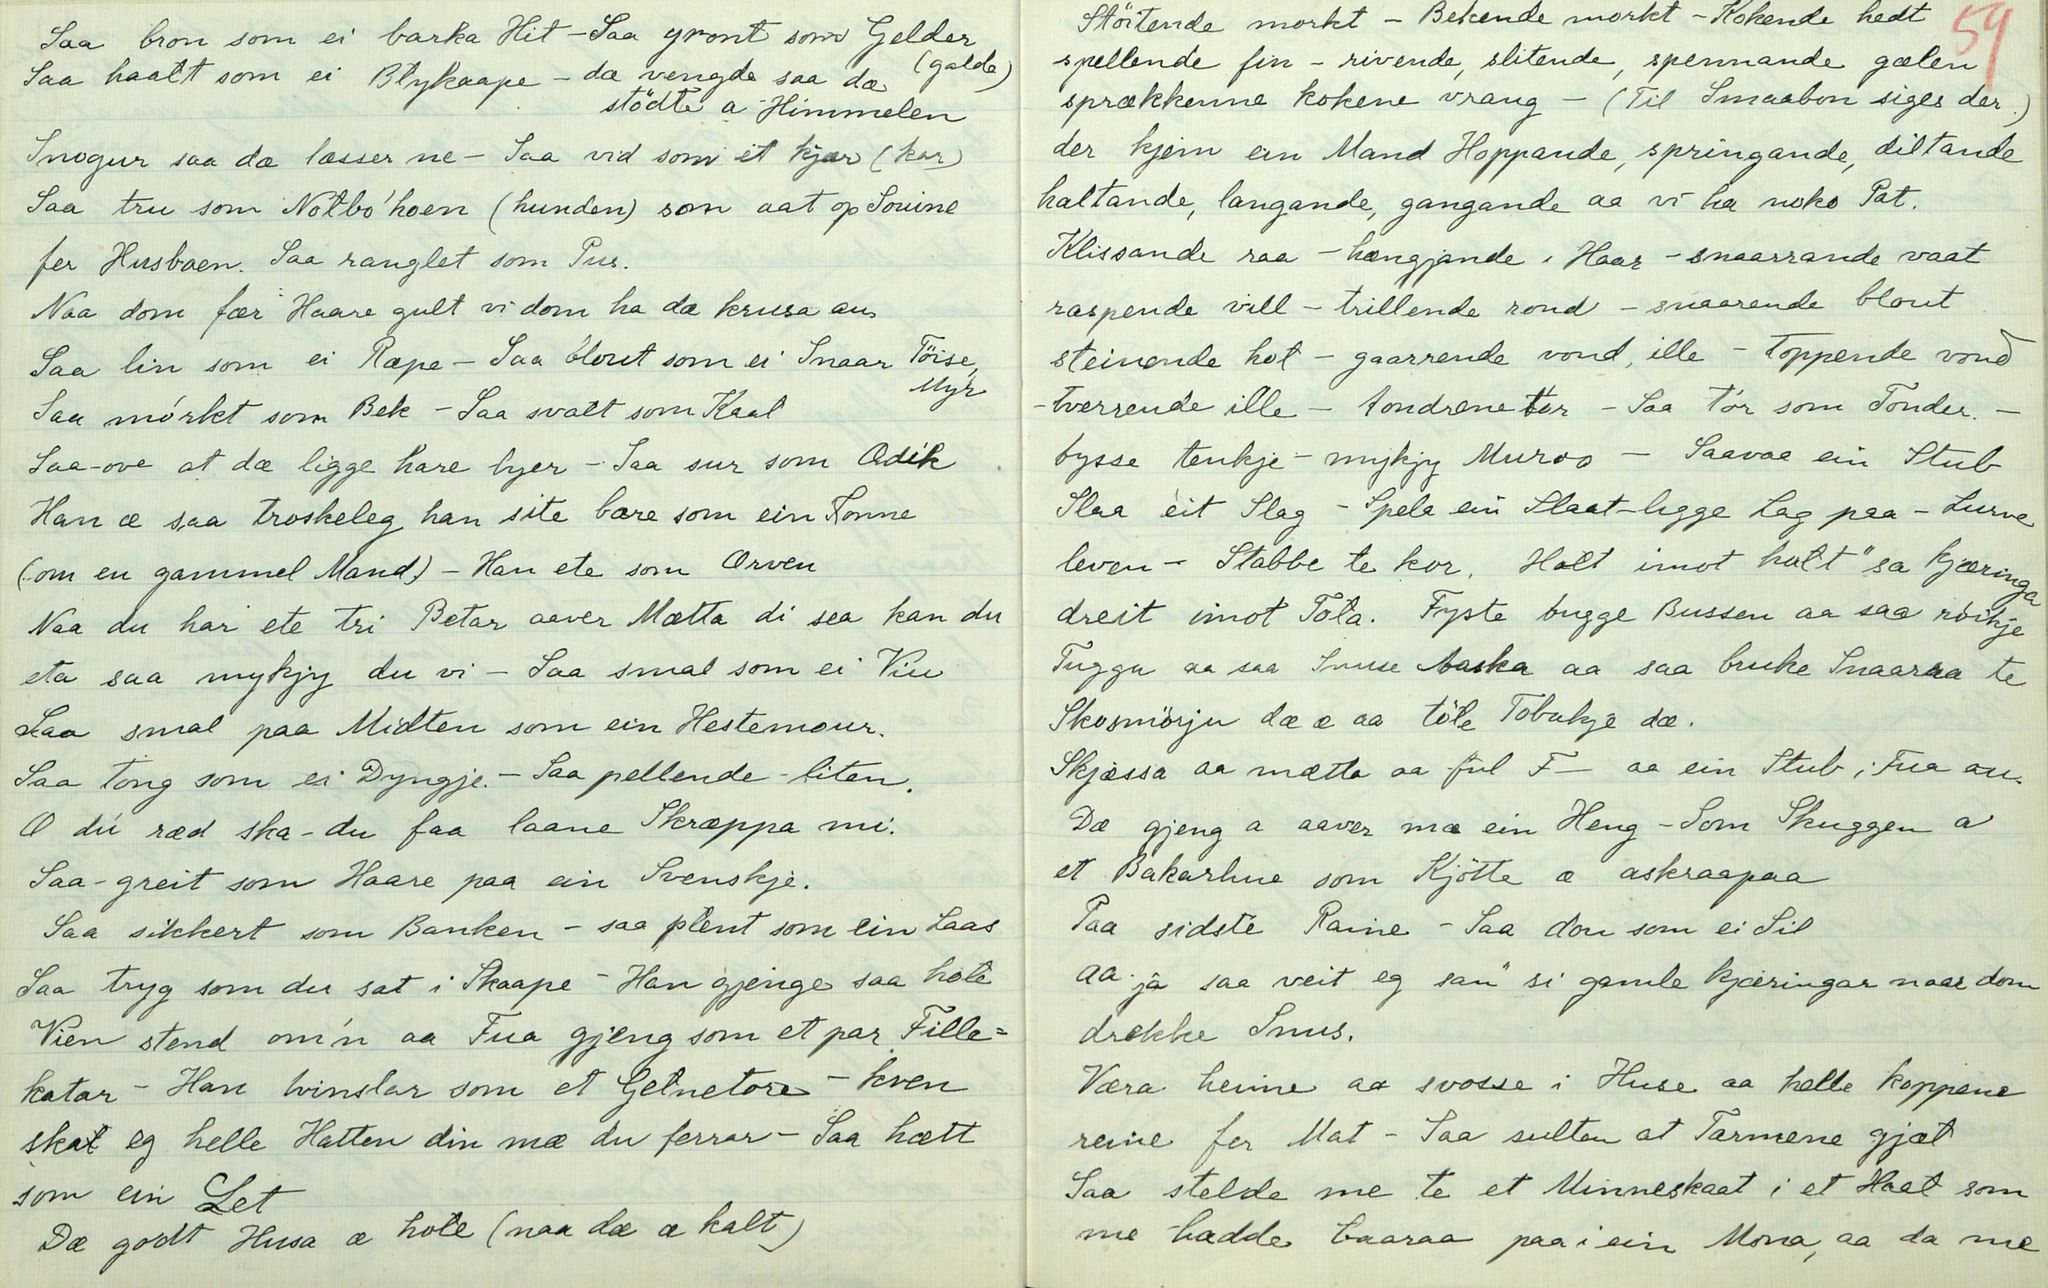 Saa bron som ei barka Hit - Saa gront som Gelder
(galde)
Saa haalt som ei Blykaape - dæ vengde saa dæ
stödte a Himmelen
Snogur saa dæ læsser ne - Saa vid som et kjær (kar)
Saa tru som Nötbo'hoen (hunden) som aat op Souine
fer Husbaen. Saa ranglet som Pus.
Naa dom fær Haare gult vi dom ha dæ krusa au
Saa lin som ei Ræpe - Saa blout som ei Snaar Töise,
Myr
Saa mórkt som Bek - Saa svalt som Kaal
Saa-ove at dæ ligge hare byer - Saa sur som Ædik
Han æ saa troskeleg han site bære som ein Tonne
(om en gammel Mand) - Han ete som Orven
Naa du har ete tri Betar aaver Mætta di sea kan du
eta saa mykjy du vi - Saa smal som ei Viu
Saa smal paa Midten som ein Hestemour.
Saa tong som ei Dyngje. - Saa pellende - liten.
Æ dú ræd ska-du faa laane Skræppa mi.
Saa-greit som Haare paa ein Svenskje.
Saa sikkert som Banken - saa plent som ein Laas
Saa tryg som du sat i Skaape - Han gjenge saa hole
Vien stend om'n aa Fua gjeng som et par Fille=
katar - Han vinslar som et Getnetore - kven
skal eg helle Hatten din mæ du ferrar - Saa hætt
som ein Let
Dæ godt Husa æ hole (naa dæ æ kalt)
59
Stöitende morkt - Bekende morkt - Kokende hedt
spellende fin - rivende, slitende, spennande gælen
sprækkenne kokene vrang - (Til Smaabon siges der.)
der kjem ein Mand Hoppande, springande, diltande
haltande, langande, gangande aa vi ha noko Pat.
Klissande raa - hængjande i Haar - snaarrande vaat
raspende vill - trillende rond - snaarende blout
steinende hot - gaarrende vond, ille - Toppende vond
- tverrende ille - tondrene tor - Saa tór som Tonder. -
bysse tenkje - mykjy Muroo - Saavaa ein Stub
Slaa eit Slag - Spela ein Slaat - ligge Lag paa - Lurve
leven - Stabbe te kor. Holt imot holt" sa Kjæringa
dreit imot Tola. Fyste tugge Bussen aa saa róikje
Tuggu aa saa Snuse Aaska aa saa bruke Snaaraa te
Skosmörju dæ æ aa töle Tobakje dæ.
Skjæssa aa mætta aa ful F— aa ein Stub i Fua au.
Dæ gjeng a aaver mæ ein Heng - Som Skuggen a
et Bakarhue som Kjötte æ askraapaa
Paa sidste Raine - Saa dou som ei Sil
aa ja saa veit eg san" si gamle kjæringar naar dom
drekke Snus.
Væra heime aa svosse i Huse aa helle koppene
reine fer Mat - Saa sulten at Tarmene gjæl
Saa stelde me te et Minneskaat i et Haal som
me hadde baaraa paa i ein Mona, aa da me